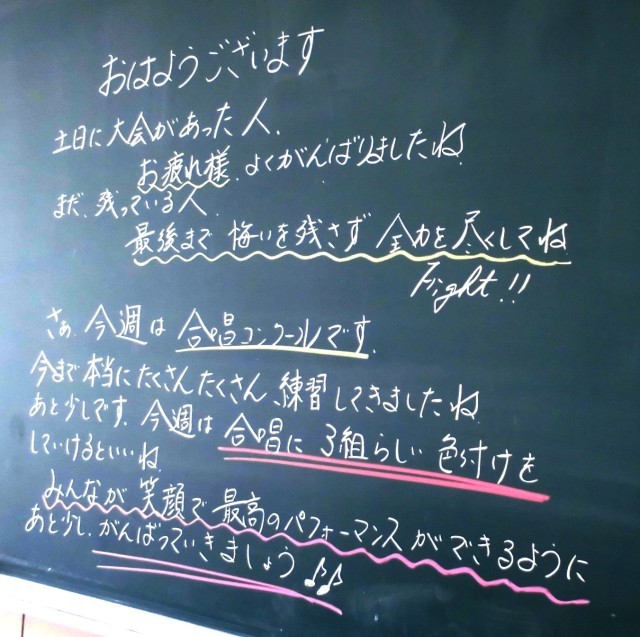 おはようございます
土日に大会があった人、
お疲れ様、よくがんばりましたね
まだ、残っている人、
最後まで 悔いを残さず 全力を尽くしてね
Fight!!
さぁ、今週は 合唱コンクールです。
今まで本当にたくさんたくさん、練習してきましたね。
あと少しです。今週は 合唱に 3組らしい 色付けを
していけるといいね。
みんなが 笑顔で 最高のパフォーマンスができるように
あと少し、がんばっていきましょう♪♪